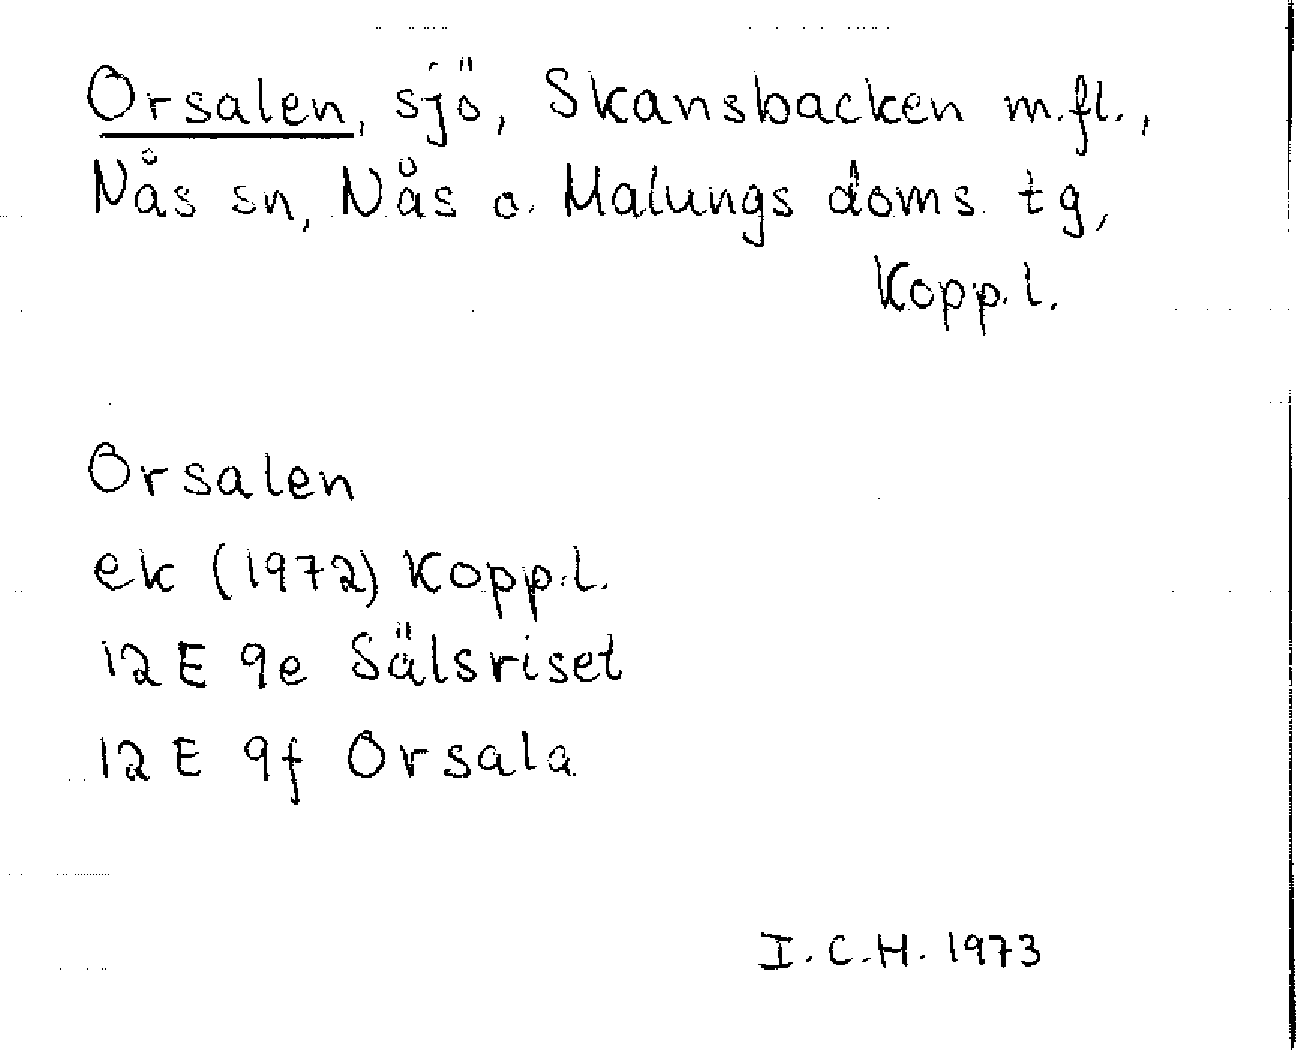 Orsalen, sjö, Skansbacken m.fl.,
Nås sn, Nås o. Malungs doms. tg,
Kopp.l.
Orsalen
ek (1972) Kopp.l.
12 E 9e Sälsriset
12 E 9f Orsala
I.C.H. 1973